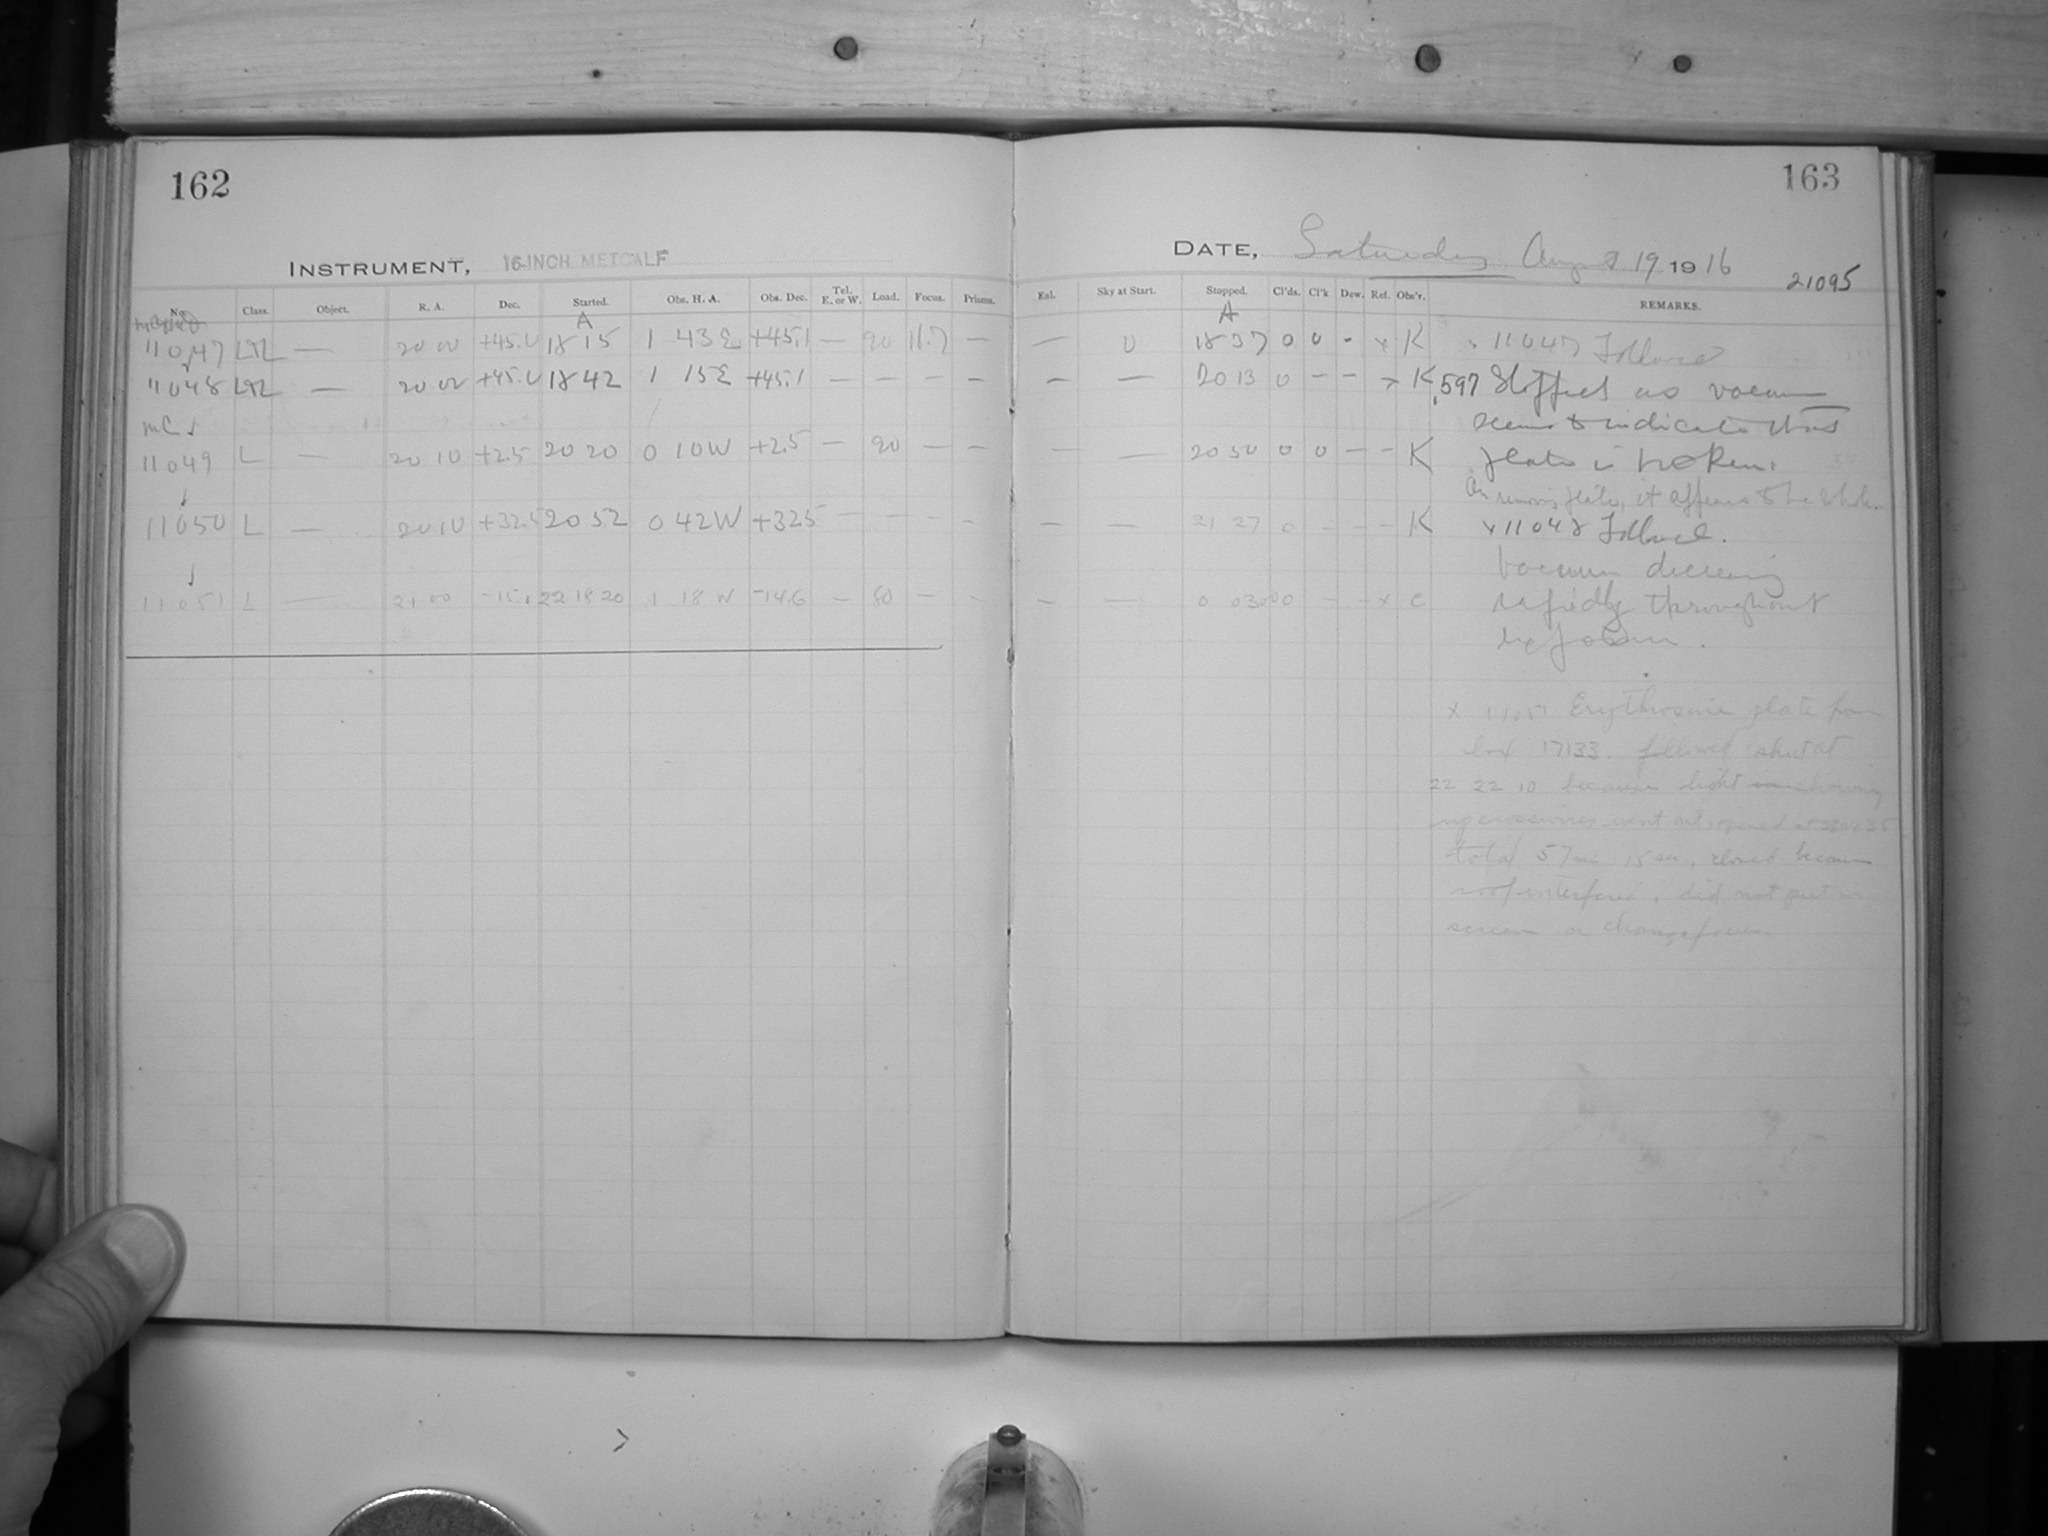 162
163
INSTRUMENT, 16-INCH METCALF
DATE, Saturday August 19 1916
21095
No. Class. Object. R. A. Dec. Started. Obs. H. A. Obs. Dec. Tel. E. or W. Load. Focus. Prisms. Enl. Sky at Start. Stopped. Cl'ds. Cl'k Dew. Ref. Obs'r. REMARKS.
A A
11047 — 20 00 +45.0 18 15 1 43 E +45.1 — 90 11.7 — — 0 18 37 0 0 - x K x 11047 Followed
11048 — 20 00 +45.0 18 42 1 15 E +45.1 — — — — — — 20 13 0 — — x K 597 Stopped as vacuum
MC
seems to indicate that
11049 L — 20 10 +2.5 20 20 0 10 W +2.5 — 90 — — — — 20 50 0 0 — — K plate is broken.
On removing plate, it appears to be whole.
11050 L — 20 10 +32.5 20 52 0 42 W +32.5 — — — — — — 21 27 0 — — — K x 11048 Followed.
Vacuum decreasing
11051 L — 21 00 -15.1 22 18 20 1 18 W -14.6 — 80 — — — — 0 03 00 0 — — x C rapidly throughout
exposure.
x 11051 Erythrosine plate from
box 17133. followed shut at
22 22 10 because light showing
went out, opened at
total 57 min 15 sec., closed because
roof interfered, did not put in
screen or change focus.